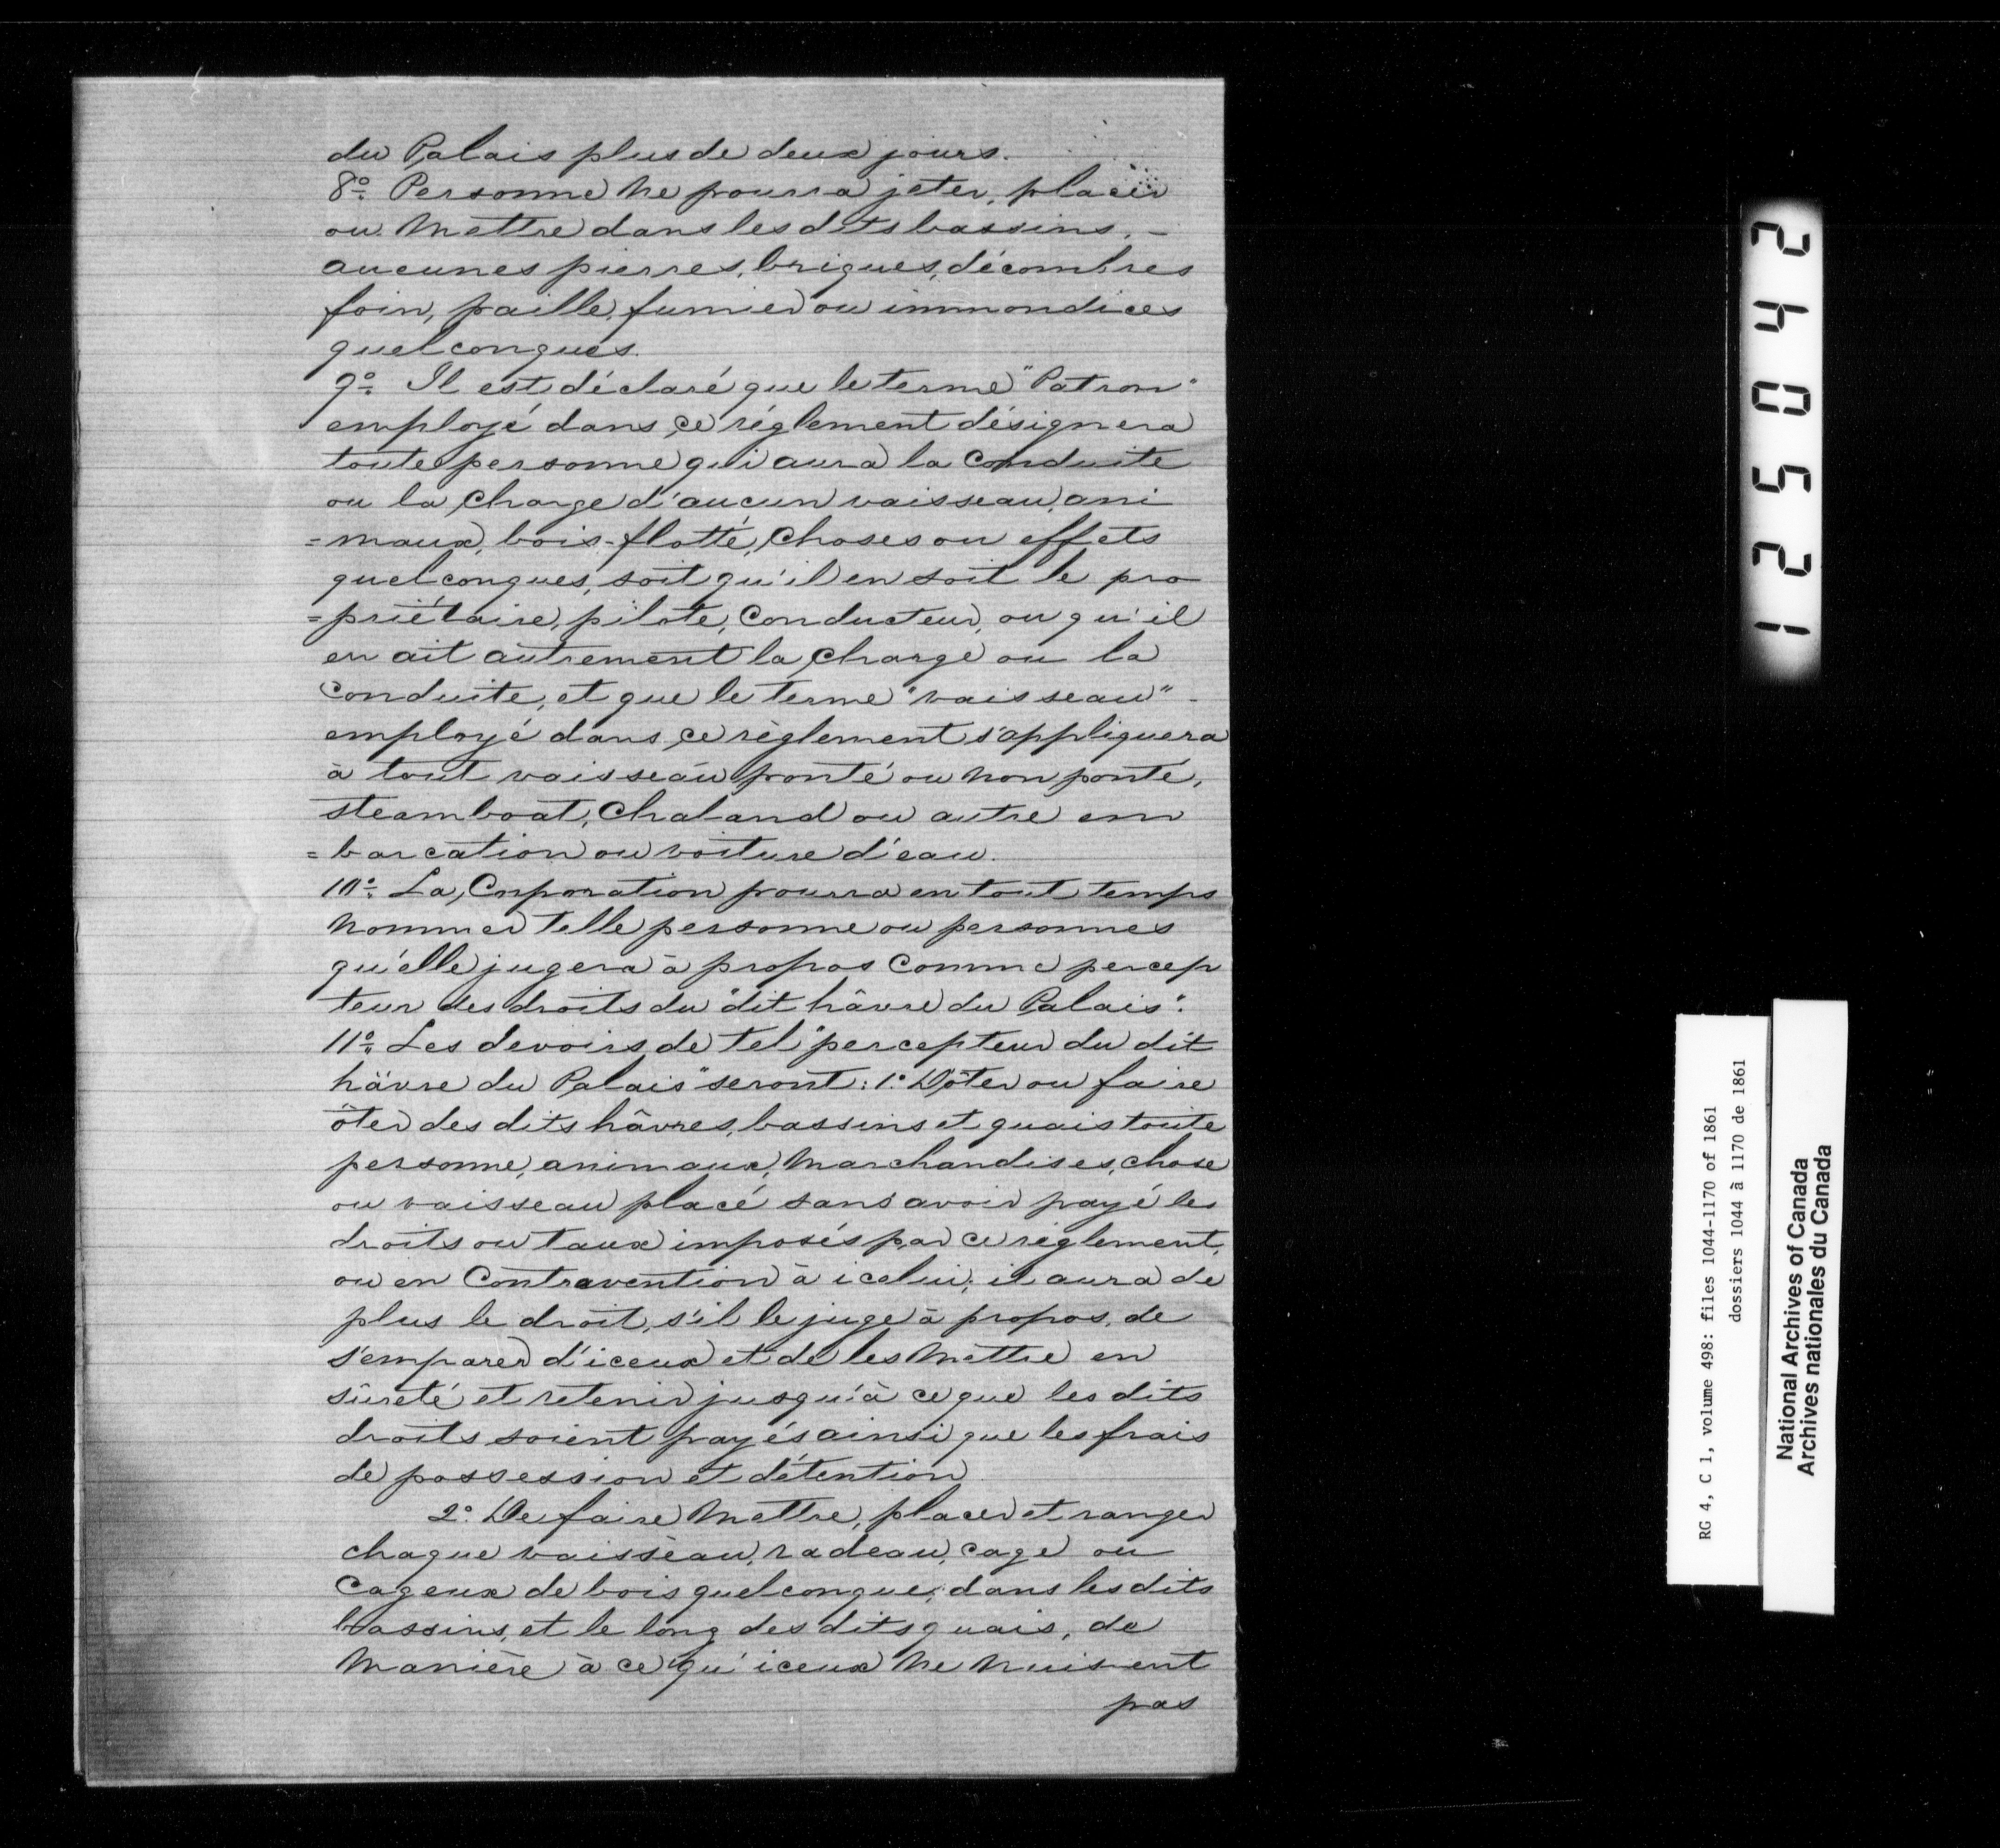 du Palais plus de deux jours.
8º Personne ne pourra jeter, placer
ou mettre dans les dits bassins. –
aucunes pierres, briques, décombres
foin, paille, fumier ou immondices
quelconques.
9º Il est déclaré que le terme "Patron"
employé dans ce règlement désignera
toute personne qui aura la conduite
ou la charge d'aucun vaisseau, ani
=maux, bois-flotté, choses ou effets
quelconques, soit qu'il en soit le pro
=priétaire, pilote, conducteur, ou qu'il
en ait autrement la charge ou la
conduite, et que le terme "vaisseau" -
employé dans ce règlement s'appliquera
à tout vaisseau ponté ou non ponté,
steamboat, chaland ou autre em
=barcation ou voiture d'eau.
10º La Corporation pourra en tout temps
nommer telle personne ou personnes
qu'elle jugera à propos comme percep
teur des droits du "dit hâvre du Palais".
11º Les devoirs de tel "percepteur du dit
hâvre du Palais" seront: 1º D'ôter ou faire
ôter des dits hâvres, bassins et quais toute
personne, animaux, marchandises, chose
ou vaisseau placé sans avoir payé les
droits ou taux imposés par ce règlement,
ou en contravention à icelui; il aura de
plus le droit, s'il le juge à propos, de
s'emparer d'iceux et de les mettre en
sûreté et retenir jusqu'à ce que les dits
droits soient payés ainsi que les frais
de possession et détention
2º De faire mettre, placer et ranger
chaque vaisseau, radeau, cage ou
cageux de bois quelconque, dans les dits
bassins, et le long des dits quais, de
manière à ce qu'iceux ne nuisent
pas
125042
RG 4, C 1, volume 498: files 1044-1170 of 1861
dossiers 1044 à 1170 de 1861
National Archives of Canada
Archives nationales du Canada